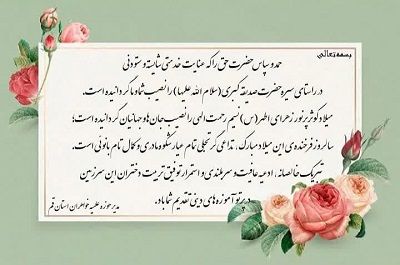 بسمه‌تعالی
حمد و سپاس حضرت حق را که عنایت خدمتی شایسته و ستودنی
در راستای سیره حضرت صدیقه کبری (سلام الله علیها) را نصیب شما و ما گردانیده است.
میلاد کوثر پرنور زهرای اطهر (س) نسیم رحمت الهی را نصیب جان‌ها و جهانیان گردانیده است؛
سالروز فرخنده‌ی این میلاد مبارک، تداعی‌گر تجلی تمام عیار شکوه مادری و کمال تمام بانوئی است.
تبریک خالصانه، ادعیه عافیت و سربلندی و استمرار توفیق تربیت دختران این سرزمین
در پرتو آموزه‌های دینی تقدیم شما باد.
مدیر حوزه علمیه خواهران استان قم